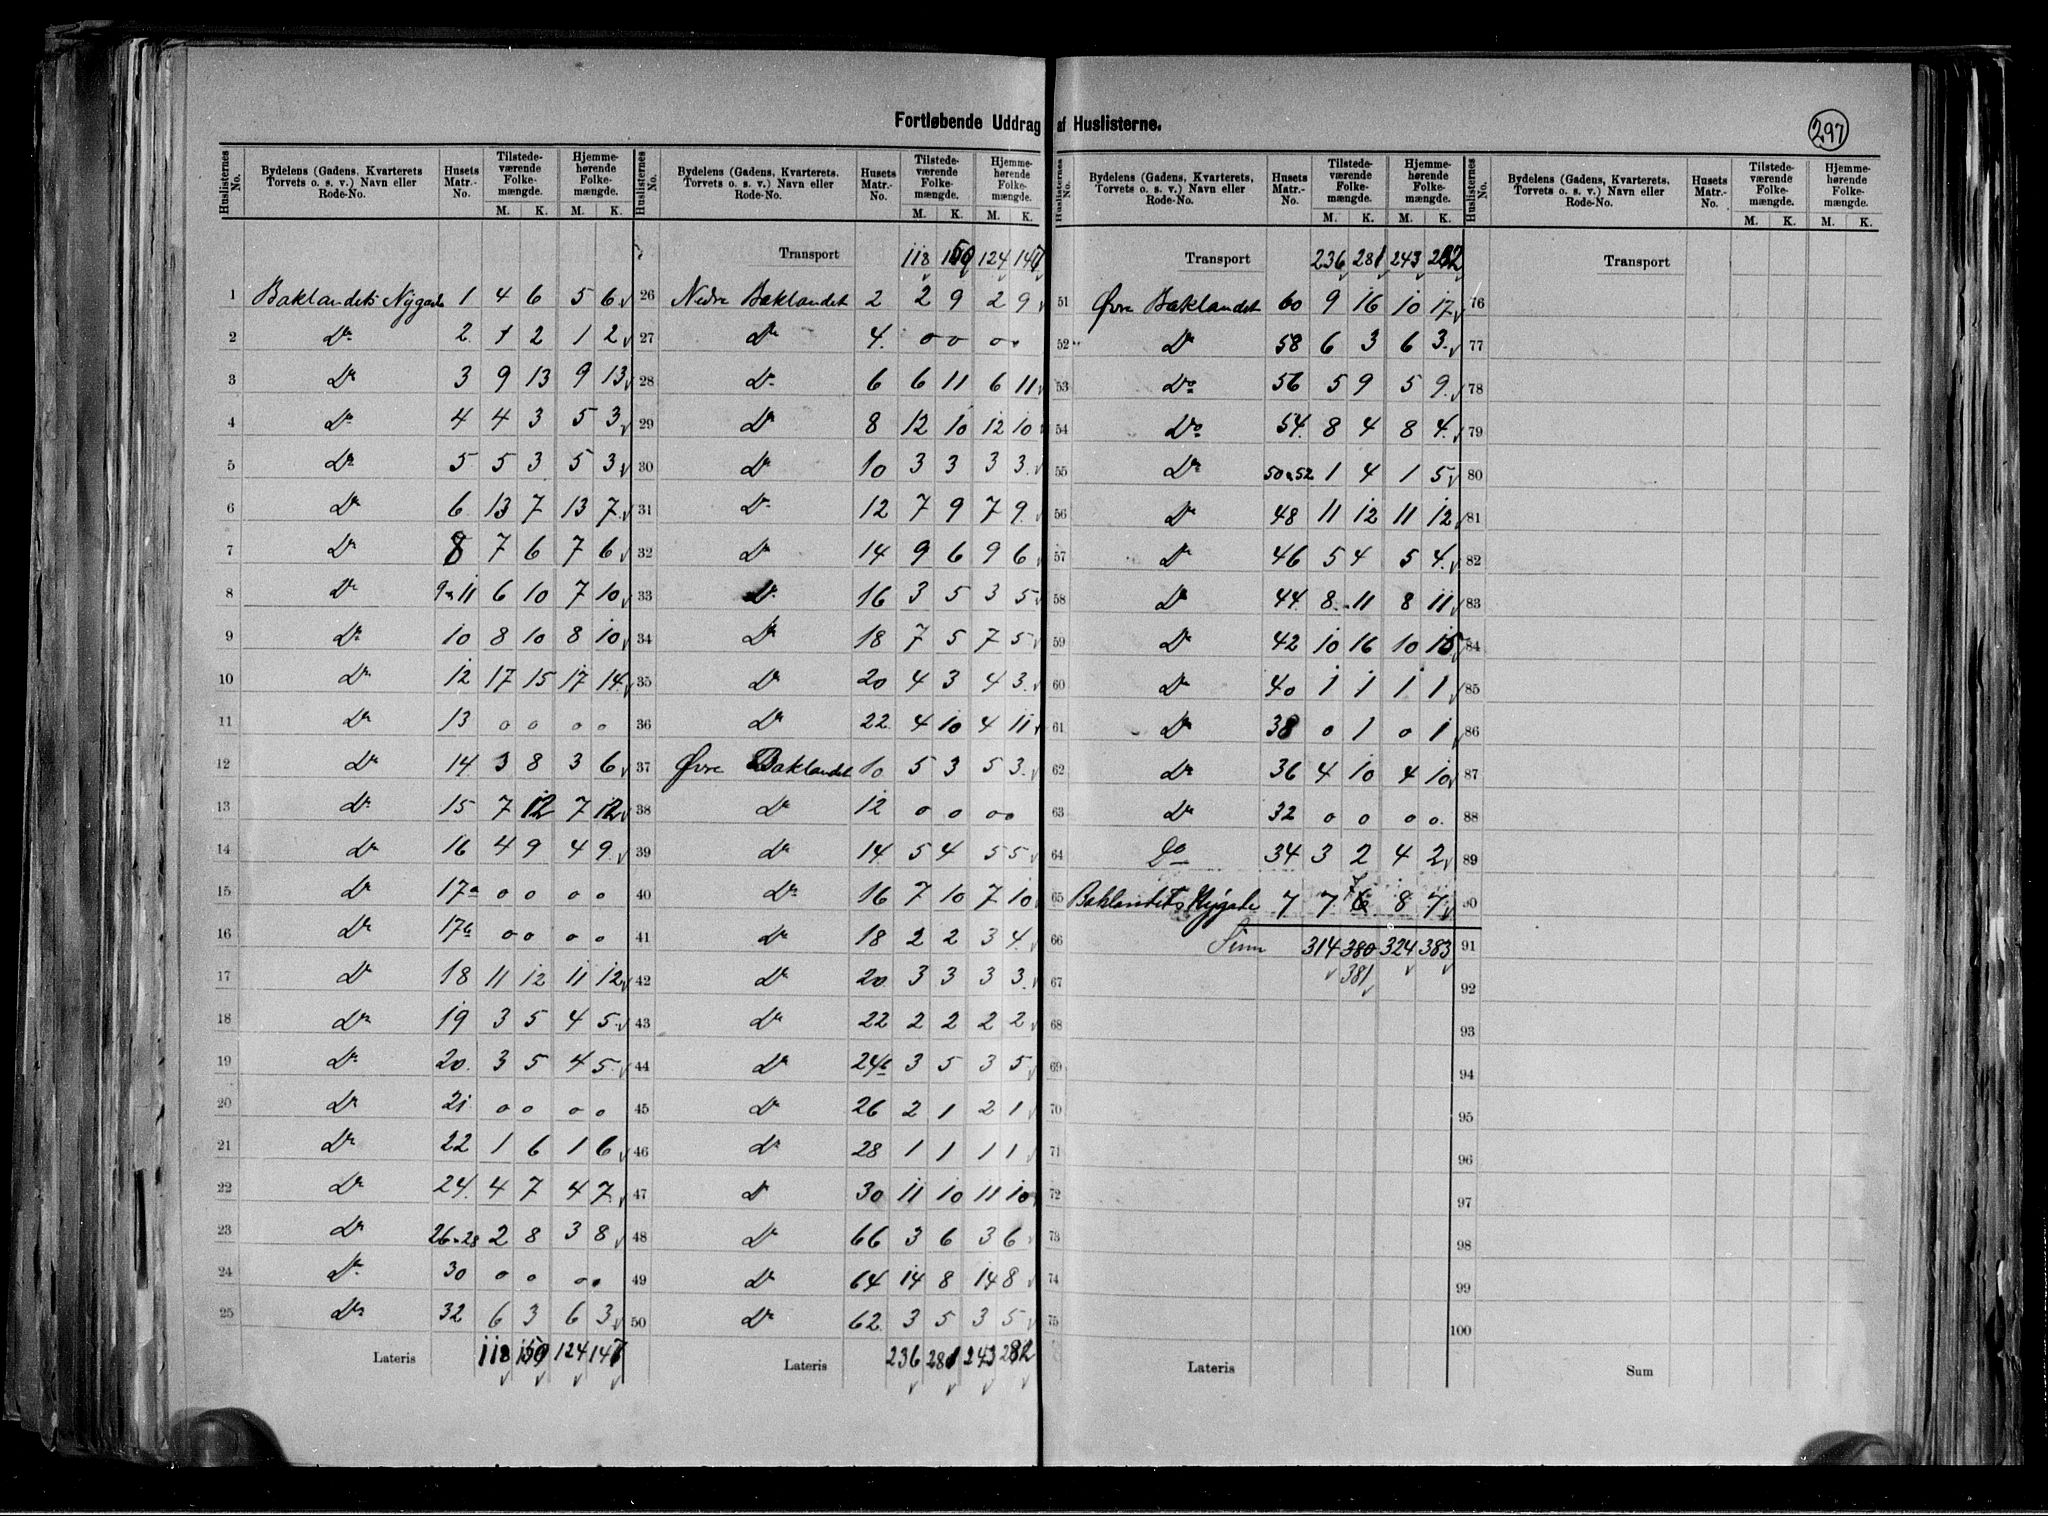 Fortløbende Uddrag af Huslisterne.
297
Huslisternes No. | Bydelens (Gadens, Kvarterets, Torvets o. s. v.) Navn eller Rode-No. | Husets Matr.-No. | Tilstede-værende Folke-mængde. M. K. | Hjemme-hørende Folke-mængde. M. K.
1 Baklandets Nygade 1 4 6 5 6
2 Do 2 1 2 1 2
3 Do 3 9 13 9 13
4 Do 4 4 3 5 3
5 Do 5 5 3 5 3
6 Do 6 13 7 13 7
7 Do 8 7 6 7 6
8 Do 9 11 6 10 7 10
9 Do 10 8 10 8 10
10 Do 12 17 15 17 14
11 Do 13 0 0 0 0
12 Do 14 3 8 3 6
13 Do 15 7 12 7 12
14 Do 16 4 9 4 9
15 Do 17a 0 0 0 0
16 Do 17b 0 0 0 0
17 Do 18 11 12 11 12
18 Do 19 3 5 4 5
19 Do 20 3 5 4 5
20 Do 21 0 0 0 0
21 Do 22 1 6 1 6
22 Do 24 4 7 4 7
23 Do 26-28 2 8 3 8
24 Do 30 0 0 0 0
25 Do 32 6 3 6 3
Lateris 118 150 124 147
Huslisternes No. | Bydelens (Gadens, Kvarterets, Torvets o. s. v.) Navn eller Rode-No. | Husets Matr.-No. | Tilstede-værende Folke-mængde. M. K. | Hjemme-hørende Folke-mængde. M. K.
Transport 118 150 124 147
26 Nedre Baklandet 2 2 9 2 9
27 Do 4 0 0 0 0
28 Do 6 6 11 6 11
29 Do 8 12 10 12 10
30 Do 10 3 3 3 3
31 Do 12 7 9 7 9
32 Do 14 9 6 9 6
33 Do 16 3 5 3 5
34 Do 18 7 5 7 5
35 Do 20 4 3 4 3
36 Do 22 4 10 4 11
37 Øvre Baklandet 10 5 3 5 3
38 Do 12 0 0 0 0
39 Do 14 5 4 5 5
40 Do 16 7 10 7 10
41 Do 18 2 2 3 4
42 Do 20 3 3 3 3
43 Do 22 2 2 2 2
44 Do 24b 3 5 3 5
45 Do 26 2 1 2 1
46 Do 28 1 1 1 1
47 Do 30 11 10 11 10
48 Do 66 3 6 3 6
49 Do 64 14 8 14 8
50 Do 62 3 5 3 5
Lateris 236 281 243 282
Huslisternes No. | Bydelens (Gadens, Kvarterets, Torvets o. s. v.) Navn eller Rode-No. | Husets Matr.-No. | Tilstede-værende Folke-mængde. M. K. | Hjemme-hørende Folke-mængde. M. K.
Transport 236 281 243 282
51 Øvre Baklandet 60 9 16 10 17
52 Do 58 6 3 6 3
53 Do 56 5 9 5 9
54 Do 54 8 4 8 4
55 Do 50 52 1 4 1 5
56 Do 48 11 12 11 12
57 Do 46 5 4 5 4
58 Do 44 8 11 8 11
59 Do 42 10 16 10 15
60 Do 40 1 1 1 1
61 Do 38 0 1 0 1
62 Do 36 4 10 4 10
63 Do 32 0 0 0 0
64 Do 34 3 2 4 2
65 Baklandets Nygade 7 7 7 8 7
66 Sum 314 380 324 383
67 381
68
69
70
71
72
73
74
75
Lateris
Huslisternes No. | Bydelens (Gadens, Kvarterets, Torvets o. s. v.) Navn eller Rode-No. | Husets Matr.-No. | Tilstede-værende Folke-mængde. M. K. | Hjemme-hørende Folke-mængde. M. K.
Transport
76
77
78
79
80
81
82
83
84
85
86
87
88
89
90
91
92
93
94
95
96
97
98
99
100
Sum